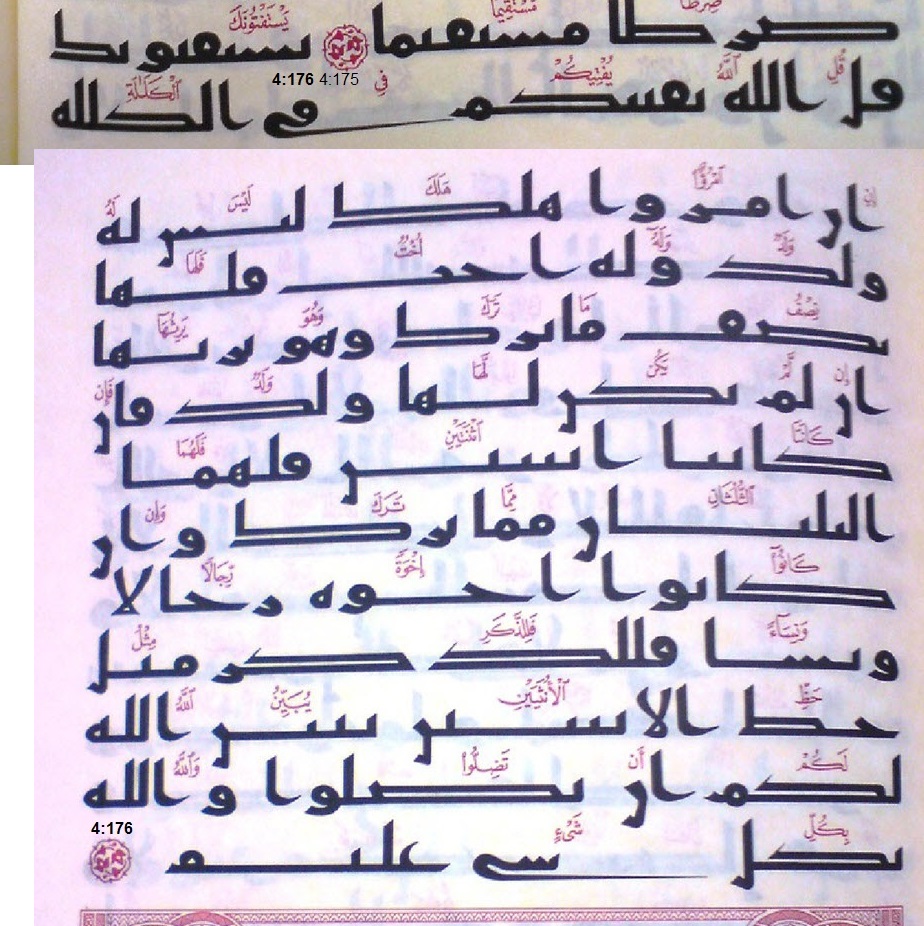 صِرَٰطًا مُّسْتَقِيمًا يَسْتَفْتُونَكَ
صرطا مستقيما يستفتونك
4:175 4:176
قُلِ ٱللَّهُ يُفْتِيكُمْ فِى ٱلْكَلَٰلَةِ
قل الله يفتيكم في الكلله
إِنِ ٱمْرُؤٌا۟ هَلَكَ لَيْسَ لَهُۥ
ان امروا هلك ليس له
وَلَدٌ وَلَهُۥٓ أُخْتٌ فَلَهَا
ولد وله اخت فلها
نِصْفُ مَا تَرَكَ وَهُوَ يَرِثُهَآ
نصف ما ترك وهو يرثها
إِن لَّمْ يَكُن لَّهَا وَلَدٌ فَإِن
ان لم يكن لها ولد فان
كَانَتَا ٱثْنَتَيْنِ فَلَهُمَا
كانتا اثنتين فلهما
ٱلثُّلُثَانِ مِمَّا تَرَكَ وَإِن
الثلثان مما ترك وان
كَانُوٓا۟ إِخْوَةً رِّجَالًا
كانوا اخوه رجالا
وَنِسَآءً فَلِلذَّكَرِ مِثْلُ
ونسا فللذكر مثل
حَظِّ ٱلْأُنثَيَيْنِ يُبَيِّنُ ٱللَّهُ
حظ الانثيين يبين الله
لَكُمْ أَن تَضِلُّوا۟ وَٱللَّهُ
لكم ان تضلوا والله
بِكُلِّ شَىْءٍ
بكل شي عليم
4:176